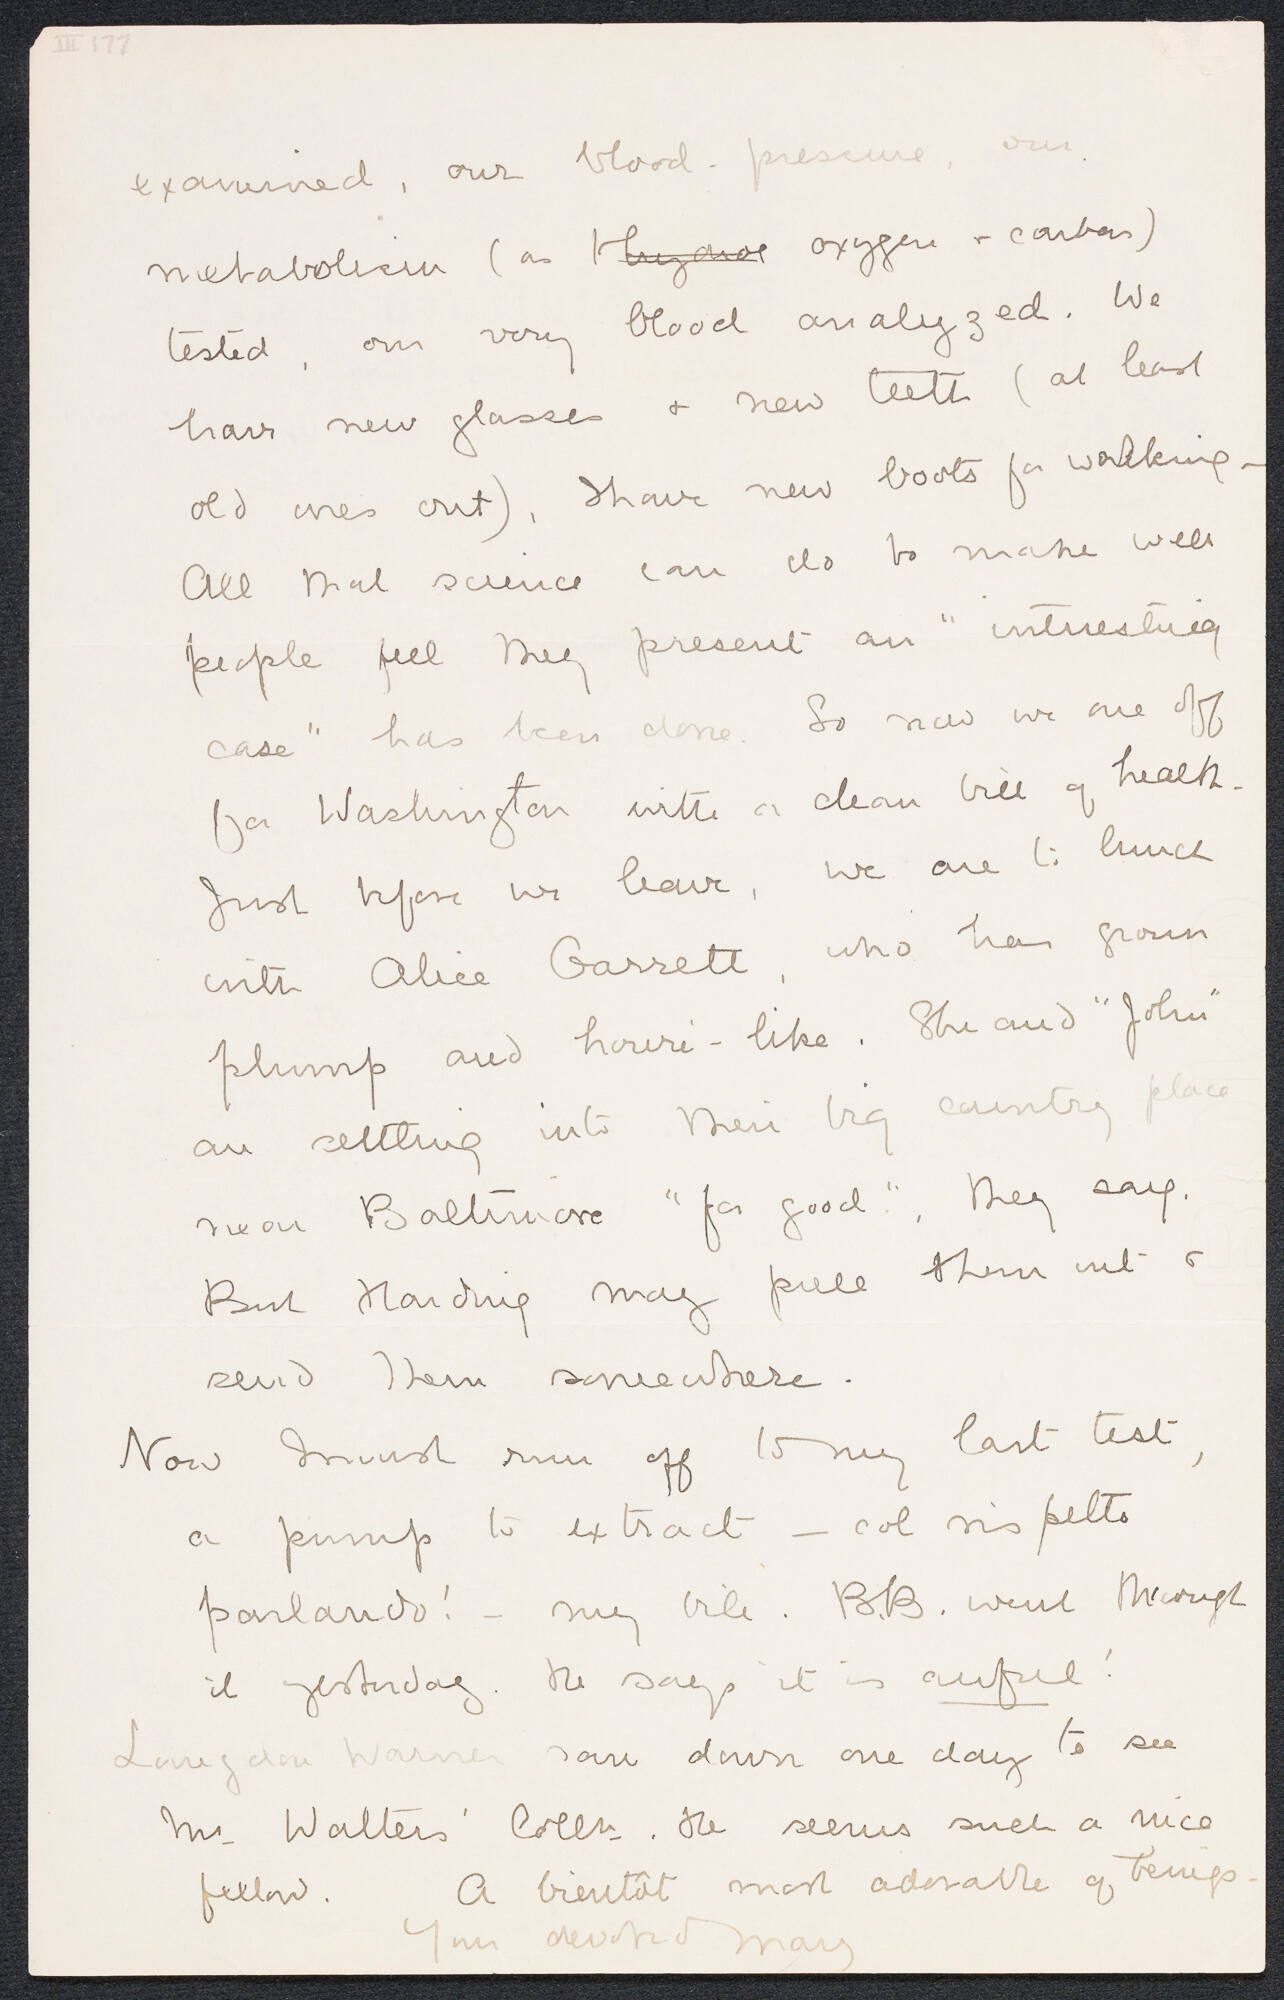 III 177
examined, our blood-pressure, our
metabolism (as to hydro oxygen & carbon)
tested, our very blood analyzed. We
have new glasses & new teeth (at least
old ones out), I have new boots for walking -
All that science can do to make well
people feel they present an "interesting
case" has been done. So now we are off
for Washington with a clean bill of health.
Just before we leave, we are to lunch
with Alice Garrett, who has grown
plump and houri-like. She and "John"
are settling into their big country place
near Baltimore "for good", they say.
But Harding may pull them out &
send them somewhere.
Now I must run off to my last test,
a pump to extract - col rispetto
parlando! - my bile. B.B. went through
it yesterday. He says it is awful!
Langdon Warner ran down one day to see
Mr. Walters' Colln. He seems such a nice
fellow. A bientôt most adorable of beings.
Your devoted Mary